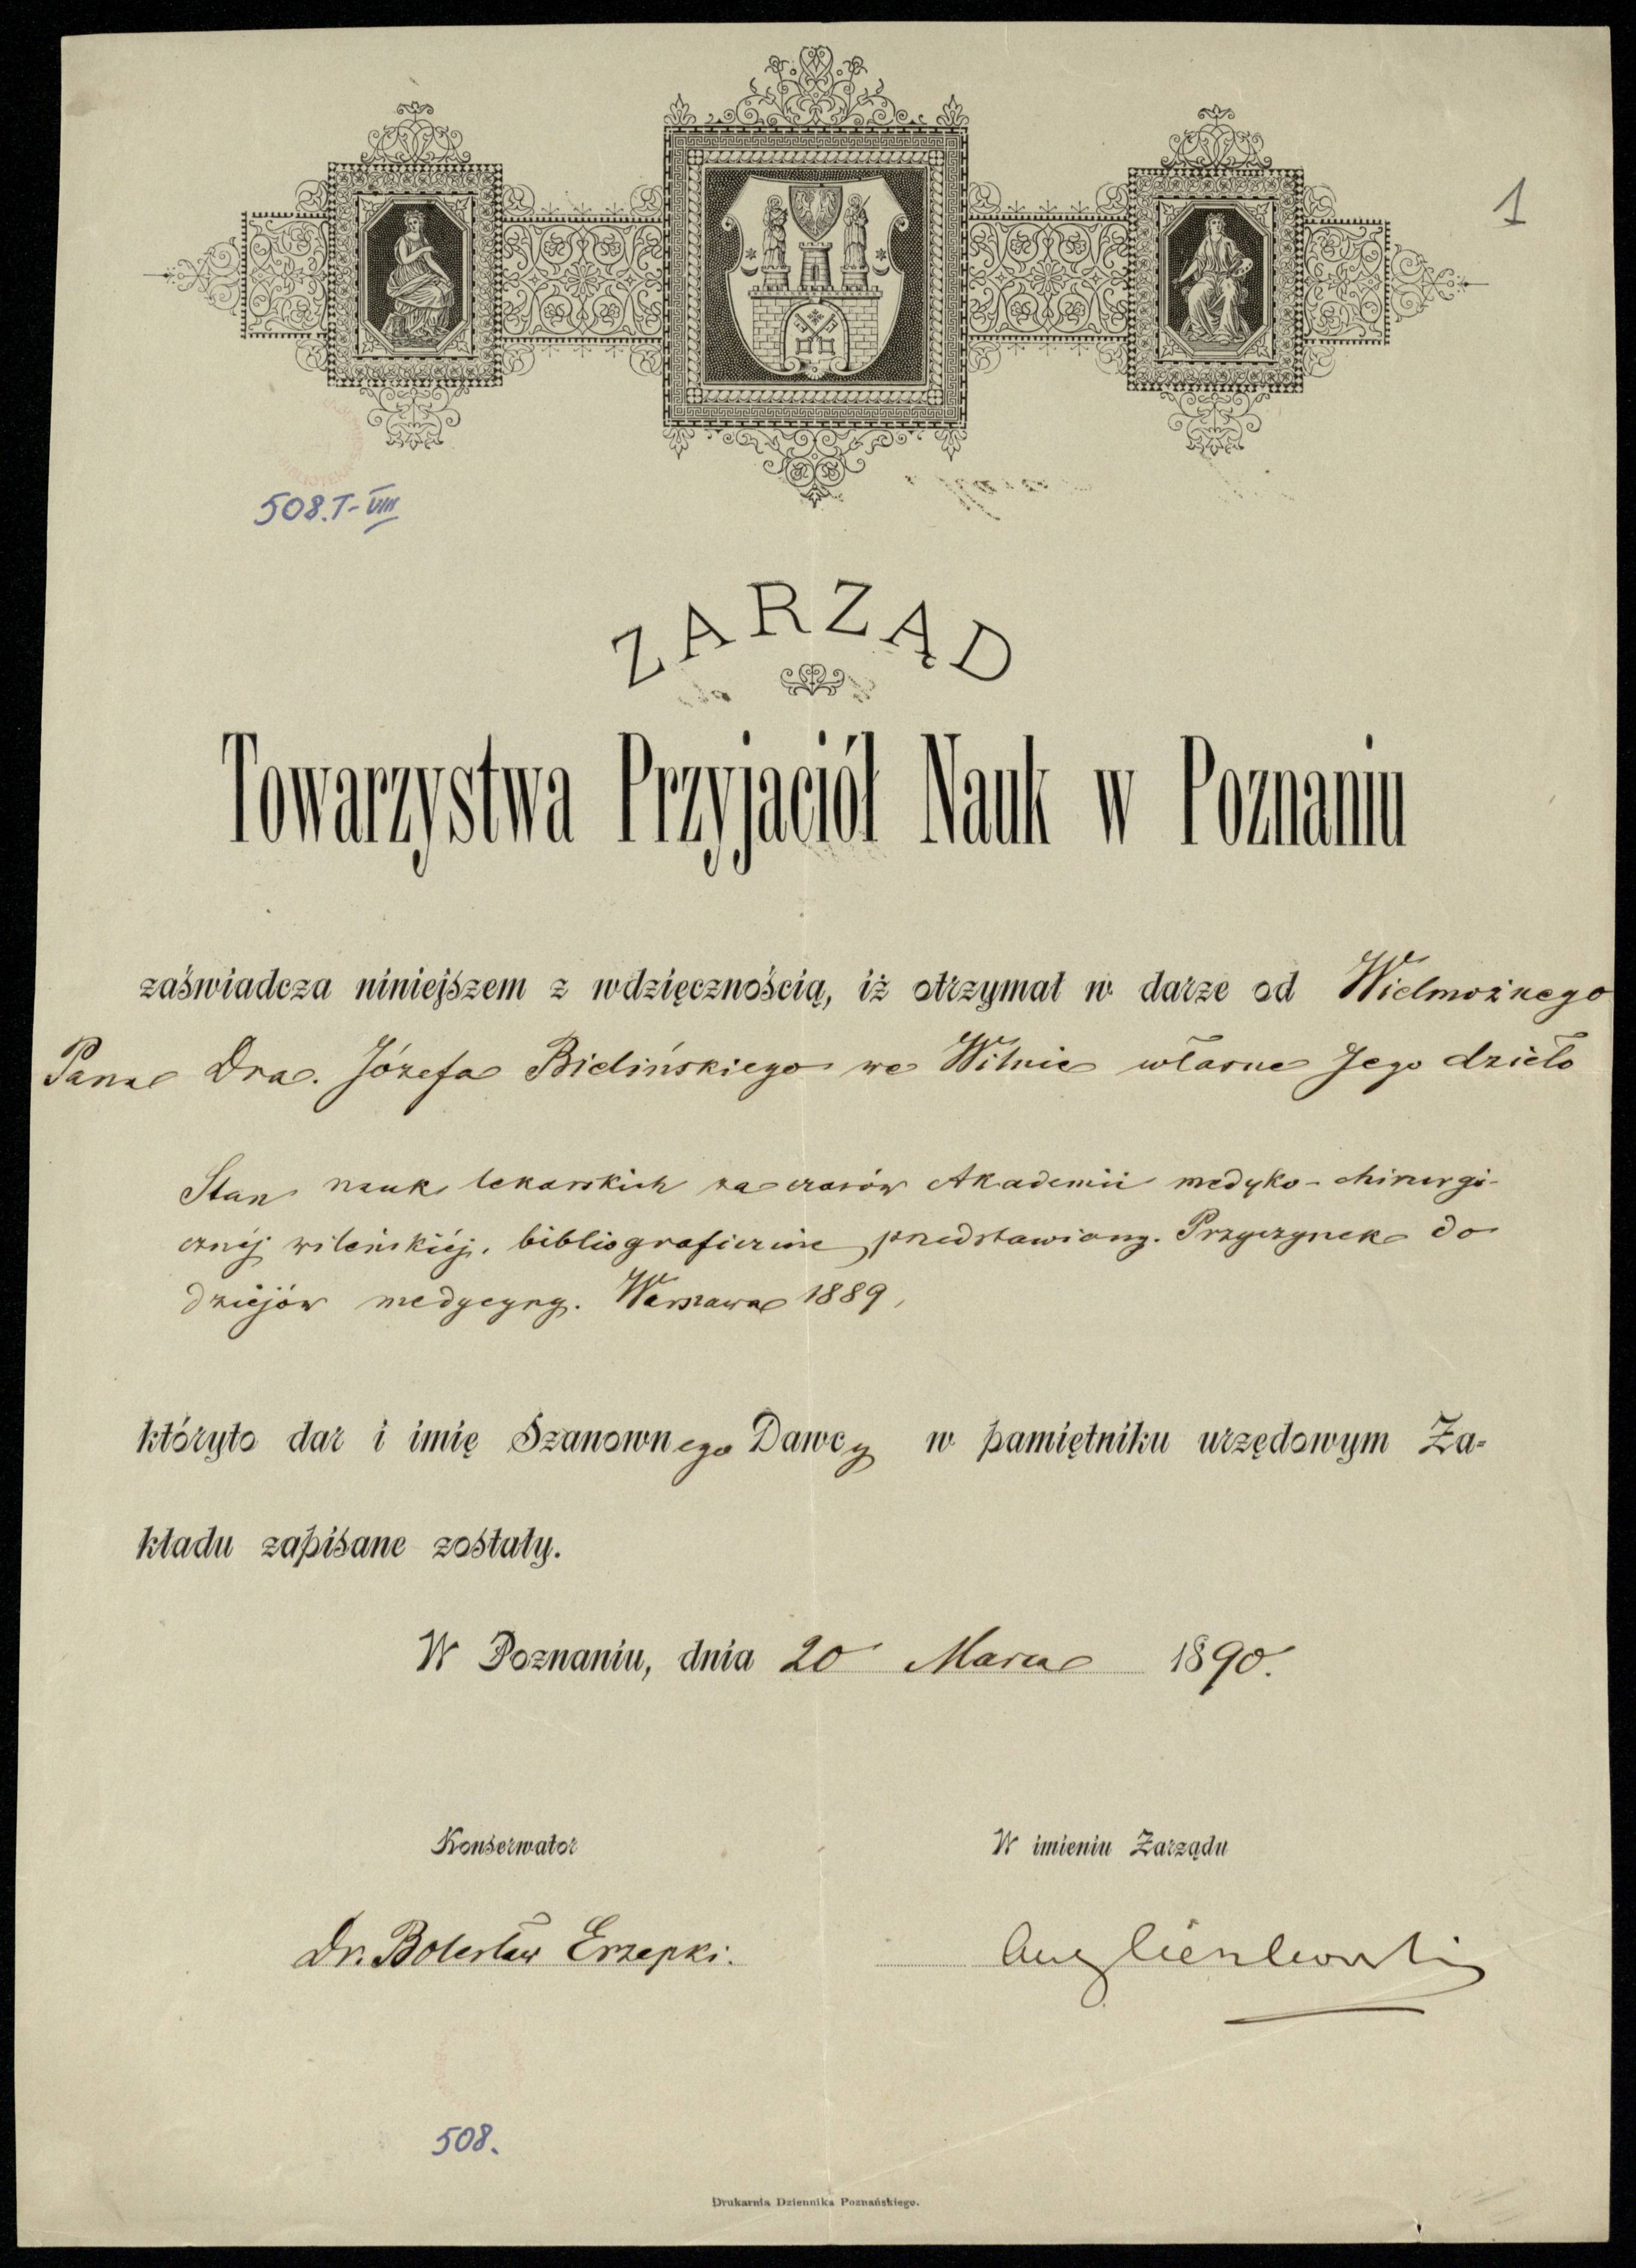 1
508.T-VIII
ZARZĄD
Towarzystwa Przyjaciół Nauk w Poznaniu
zaświadcza niniejszem z wdzięcznością, iż otrzymał w darze od Wielmożnego
Pana Dra. Józefa Bielińskiego we Wilnie własne Jego dzieło
Stan nauk lekarskich za czasów Akademii medyko-chirurgi-
cznéj wileńskiéj, bibliograficznie przedstawiony. Przyczynek do
dziejów medycyny. Warszawa 1889,
któryto dar i imię Szanownego Dawcy w pamiętniku urzędowym Za-
kładu zapisane zostały.
W Poznaniu, dnia 20 Marca 1890.
Konserwator W imieniu Zarządu
Dr. Bolesław Erzepki.
508.
Drukarnia Dziennika Poznańskiego.